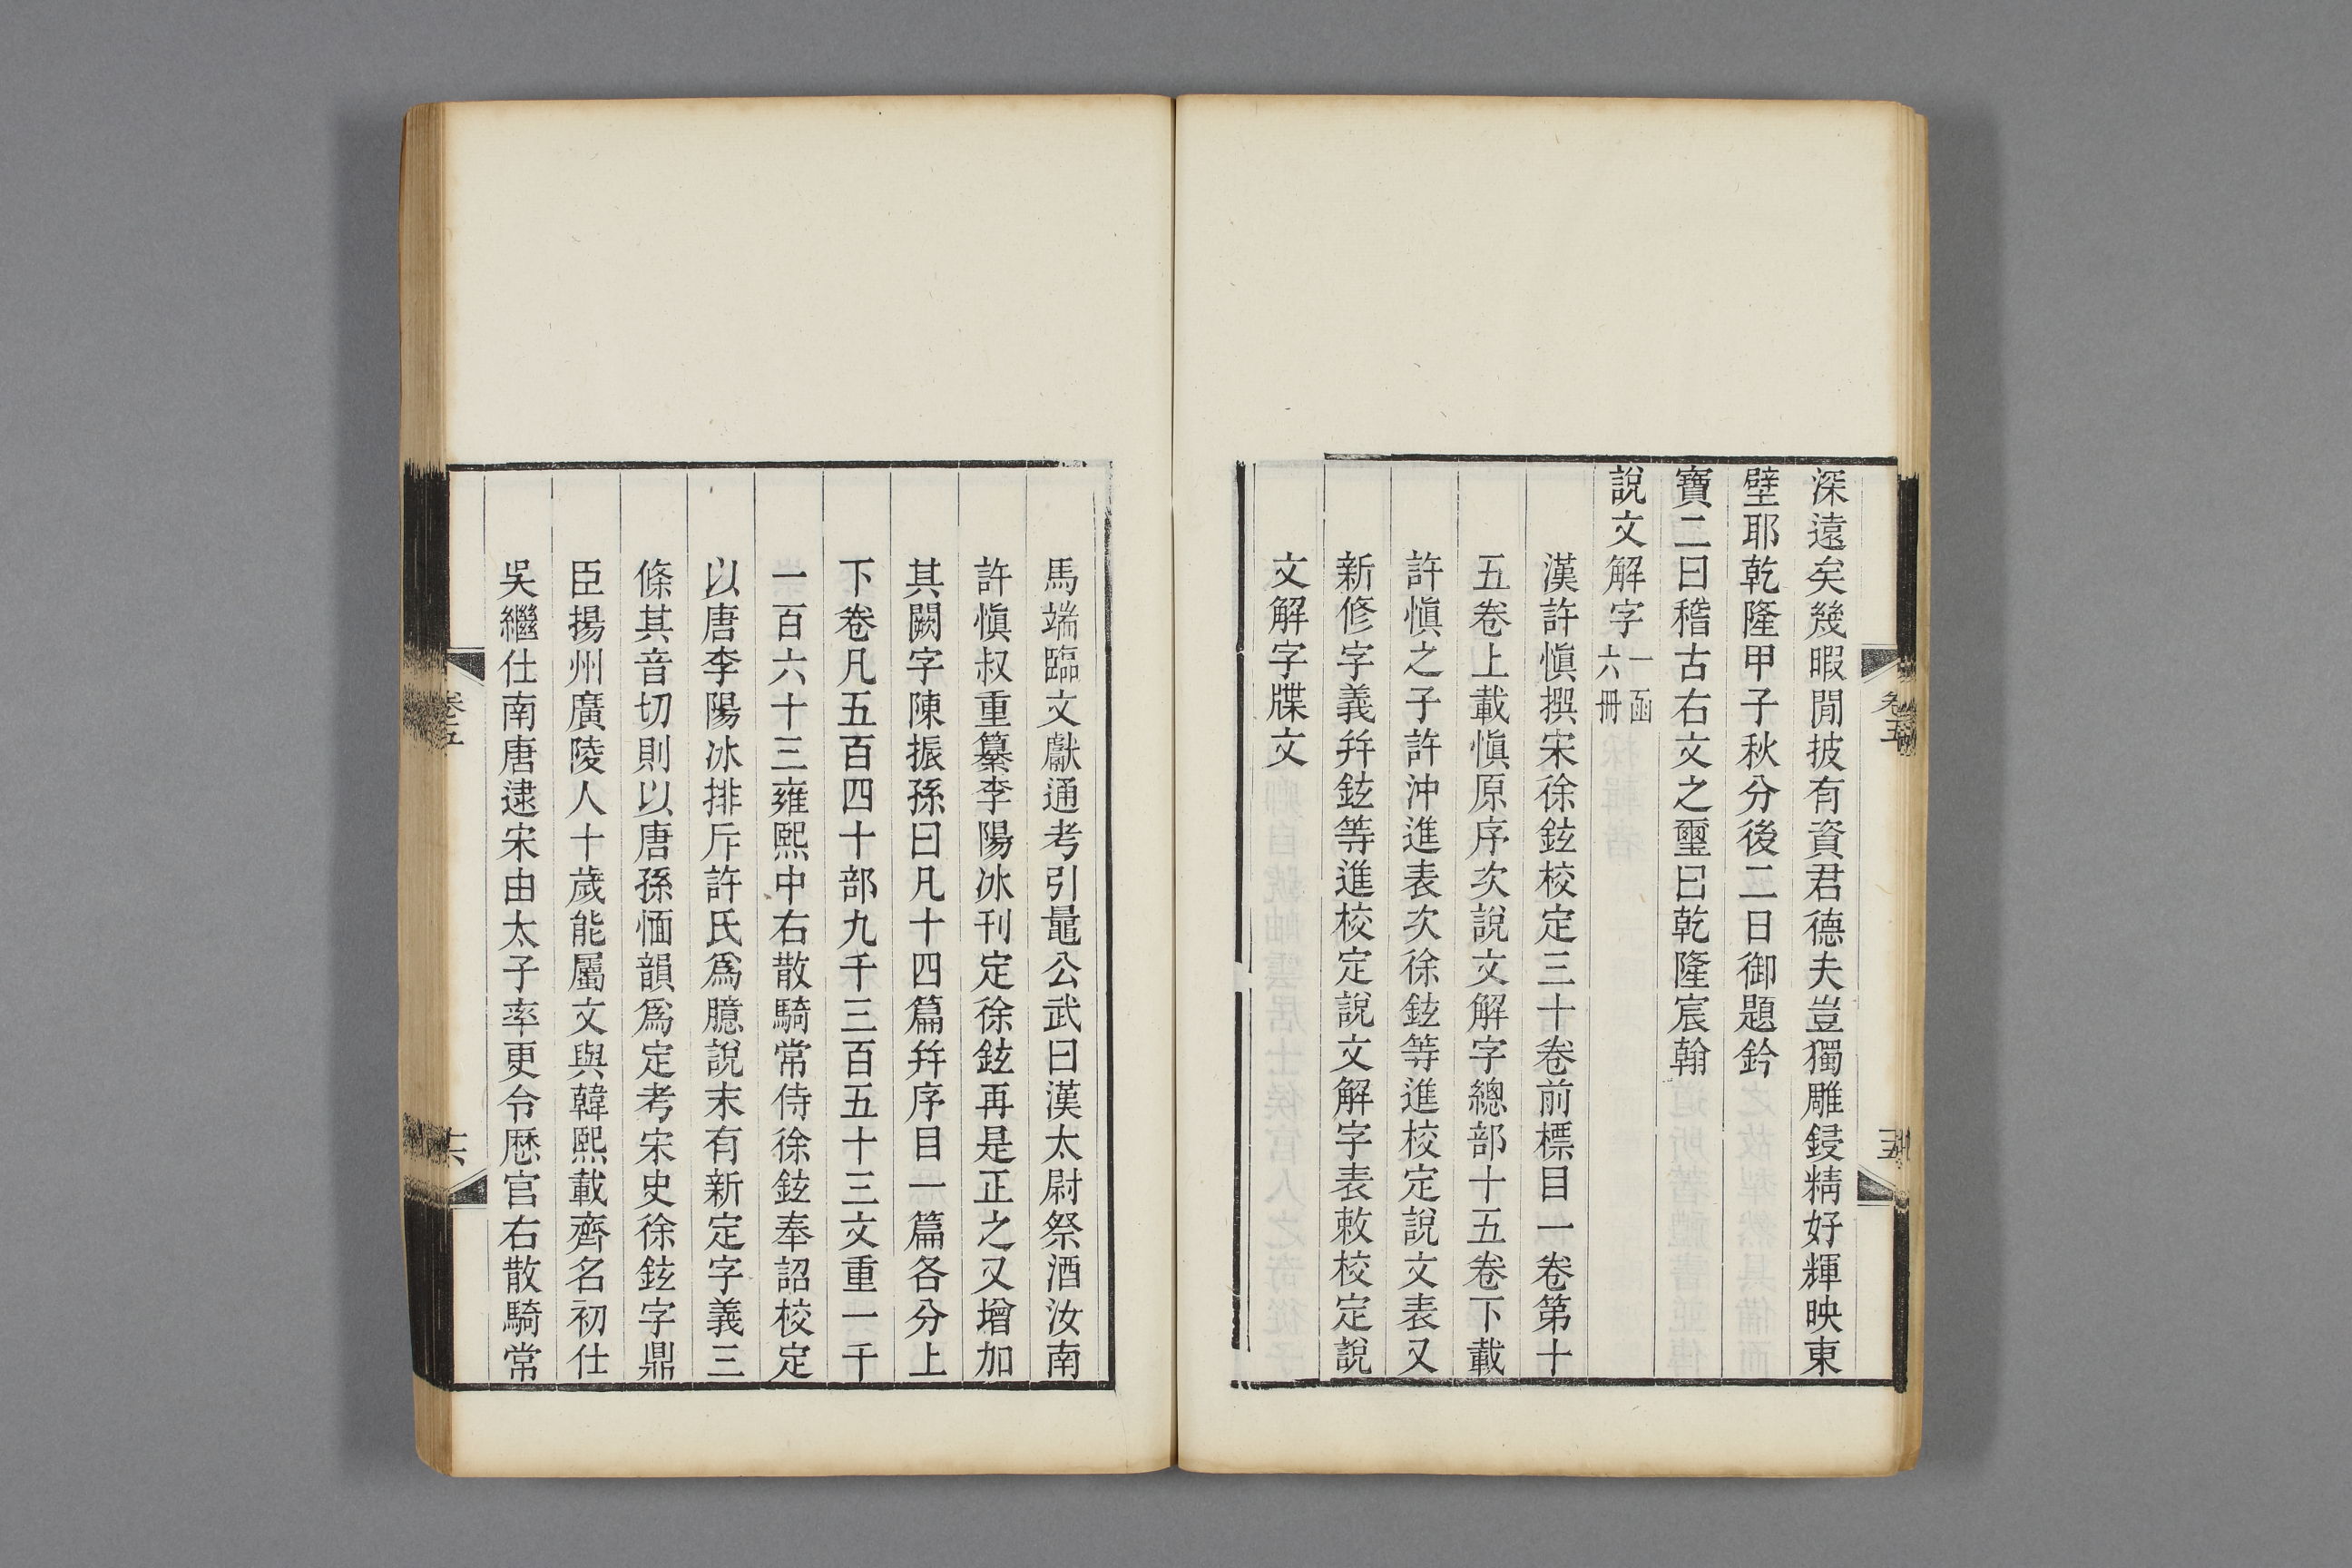 深遠矣幾暇閒披有資君德夫豈獨雕鋟精好輝映東
壁耶乾隆甲子秋分後二日御題鈐
寶二曰稽古右文之璽曰乾隆宸翰
說文解字一函六冊
漢許愼撰宋徐鉉校定三十卷前標目一卷第十
五卷上載愼原序次說文解字總部十五卷下載
許愼之子許沖進表次徐鉉等進校定說文表又
新修字義幷鉉等進校定說文解字表敕校定說
文解字牒文
卷五
馬端臨文獻通考引鼂公武曰漢太尉祭酒汝南
許愼叔重纂李陽冰刊定徐鉉再是正之又增加
其闕字陳振孫曰凡十四篇幷序目一篇各分上
下卷凡五百四十部九千三百五十三文重一千
一百六十三雍熙中右散騎常侍徐鉉奉詔校定
以唐李陽冰排斥許氏爲臆說末有新定字義三
條其音切則以唐孫愐韻爲定考宋史徐鉉字鼎
臣揚州廣陵人十歲能屬文與韓熙載齊名初仕
吳繼仕南唐逮宋由太子率更令歷官右散騎常